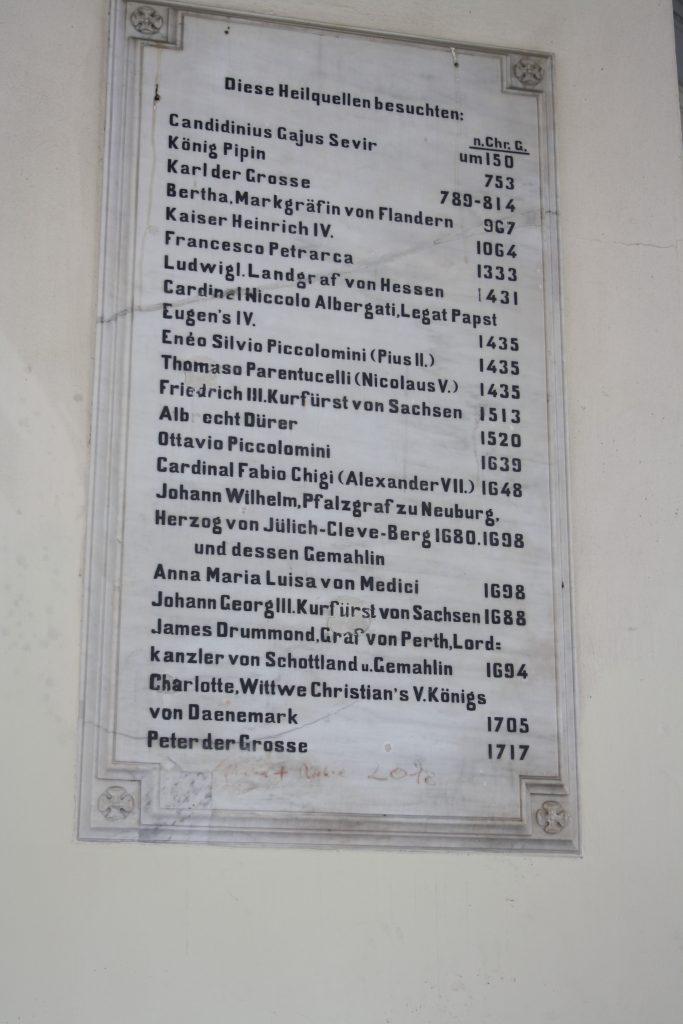 Diese Heilquellen besuchten:
n.Chr.G.
Candidinius Gajus Sevir um 150
König Pipin 753
Karl der Grosse 789-814
Bertha, Markgräfin von Flandern 967
Kaiser Heinrich IV. 1064
Francesco Petrarca 1333
Ludwig I. Landgraf von Hessen 1431
Cardinal Niccolo Albergati, Legat Papst
Eugen's IV. 1435
Enéo Silvio Piccolomini (Pius II.) 1435
Thomaso Parentucelli (Nicolaus V.) 1435
Friedrich III. Kurfürst von Sachsen 1513
Alb echt Dürer 1520
Ottavio Piccolomini 1639
Cardinal Fabio Chigi (Alexander VII.) 1648
Johann Wilhelm, Pfalzgraf zu Neuburg,
Herzog von Jülich-Cleve-Berg 1680. 1698
und dessen Gemahlin
Anna Maria Luisa von Medici 1698
Johann Georg III. Kurfürst von Sachsen 1688
James Drummond, Graf von Perth, Lord=
kanzler von Schottland u. Gemahlin 1694
Charlotte, Wittwe Christian's V. Königs
von Daenemark 1705
Peter der Grosse 1717